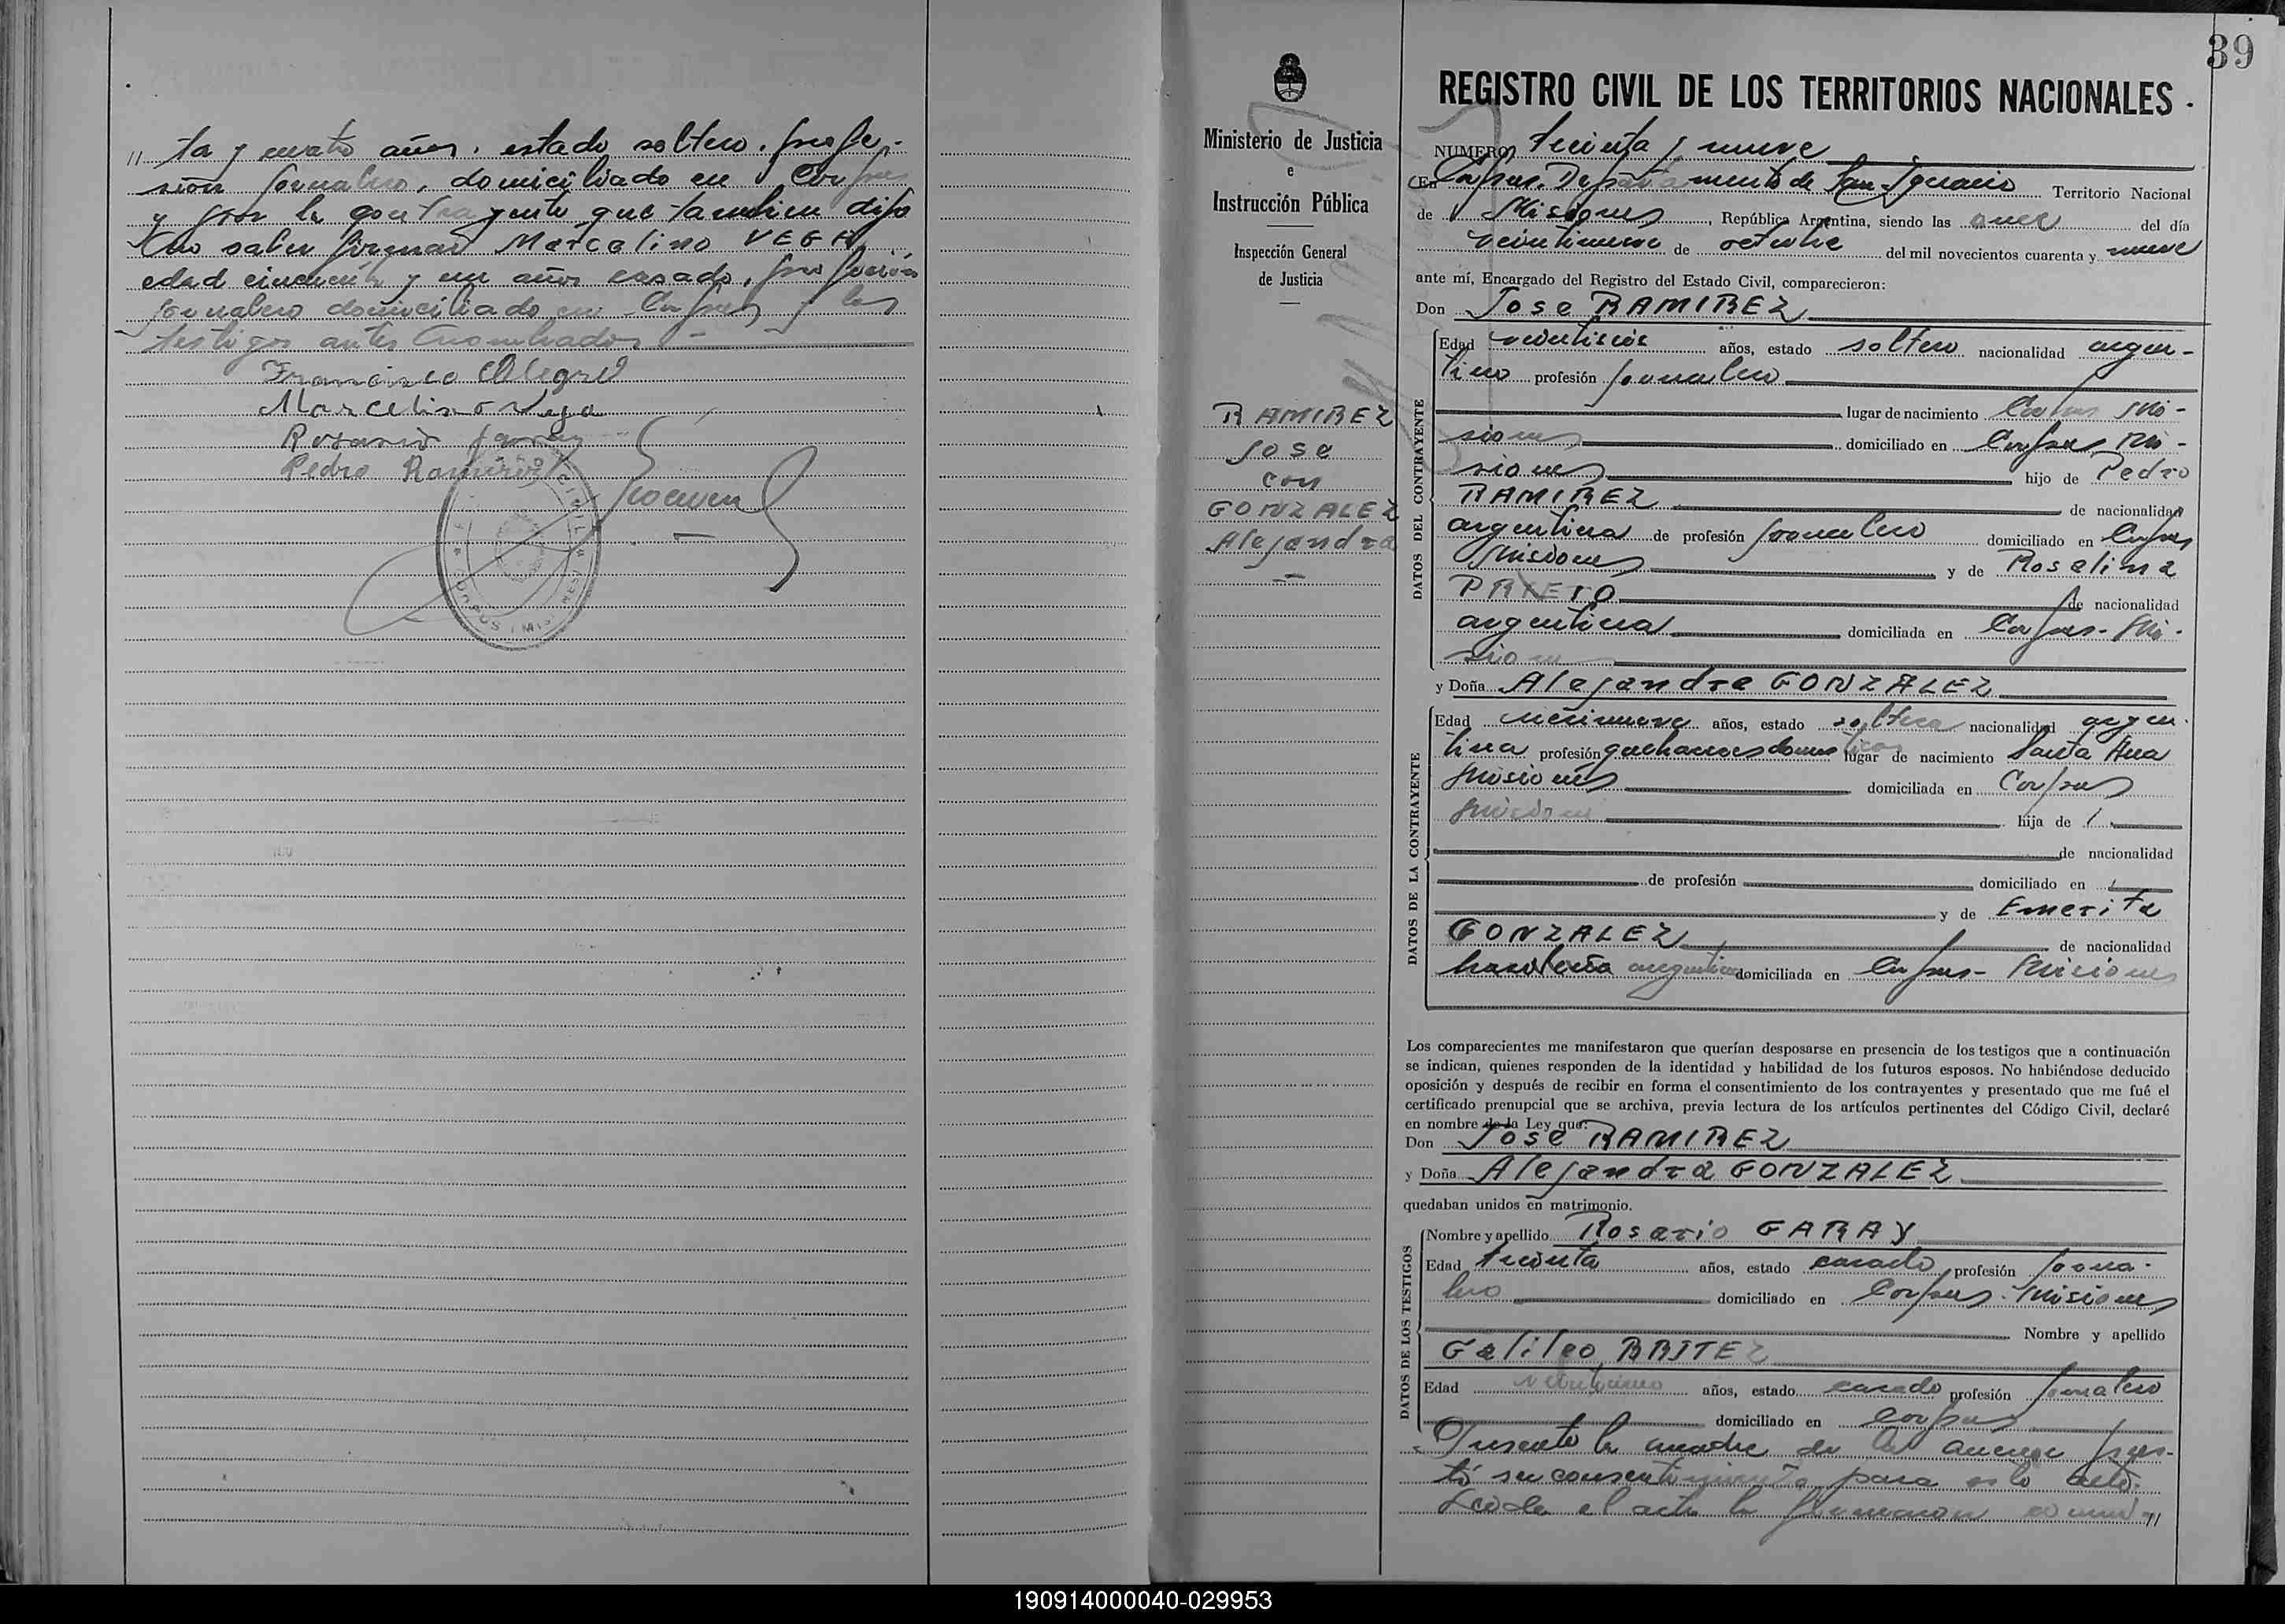 " ta y cuatro años, estado soltero, profe-
sión jornalero, domiciliado en Corpus
y por la contrayente que tambien dijo
no saber firmar Marcelino VEGA,
edad cincuenta y un años casado, profesión
jornalero domiciliado en Corpus y los
testigos antes nombrados
Francisco Alegre
Marcelino Vega
Rosario Garay
Pedro Ramirez
CIVIL
CORPUS (MISIONES)
39
REGISTRO CIVIL DE LOS TERRITORIOS NACIONALES
Ministerio de Justicia
e
Instrucción Pública
Inspección General
de Justicia
RAMIREZ
Jose
con
GONZALEZ
Alejandra
NUMERO treinta y nueve
En Corpus, Departamento de San Ignacio Territorio Nacional
de Misiones, República Argentina, siendo las once del día
veintinueve de octubre del mil novecientos cuarenta y nueve
ante mí, Encargado del Registro del Estado Civil, comparecieron:
Don Jose RAMIREZ
DATOS DEL CONTRAYENTE
Edad veintiseis años, estado soltero nacionalidad argen-
tino profesión jornalero
lugar de nacimiento Corpus Mi-
siones domiciliado en Corpus, Mi-
siones hijo de Pedro
RAMIREZ de nacionalidad
argentina de profesión jornalero domiciliado en Corpus
Misiones y de Roselima
PRIETO de nacionalidad
argentina domiciliada en Corpus - Mi-
siones
y Doña Alejandra GONZALEZ
DATOS DE LA CONTRAYENTE
Edad diecinueve años, estado soltera nacionalidad argen-
tina profesión quehaceres domesticos lugar de nacimiento Santa Ana
Misiones domiciliada en Corpus
Misiones hija de
de nacionalidad
de profesión domiciliado en
y de Emerita
GONZALEZ de nacionalidad
argentina domiciliada en Corpus - Misiones
Los comparecientes me manifestaron que querían desposarse en presencia de los testigos que a continuación
se indican, quienes responden de la identidad y habilidad de los futuros esposos. No habiéndose deducido
oposición y después de recibir en forma el consentimiento de los contrayentes y presentado que me fué el
certificado prenupcial que se archiva, previa lectura de los artículos pertinentes del Código Civil, declaré
en nombre de la Ley que:
Don Jose RAMIREZ
y Doña Alejandra GONZALEZ
quedaban unidos en matrimonio.
DATOS DE LOS TESTIGOS
Nombre y apellido Rosario GARAY
Edad treinta años, estado casado, profesión jorna-
lero domiciliado en Corpus - Misiones
Nombre y apellido
Galileo BRITEZ
Edad años, estado casado profesión jornalero
domiciliado en Corpus
Presente la madre de la menor pres-
tó su consentimiento para este acto.
Leida el acta la firmaron "
190914000040-029953